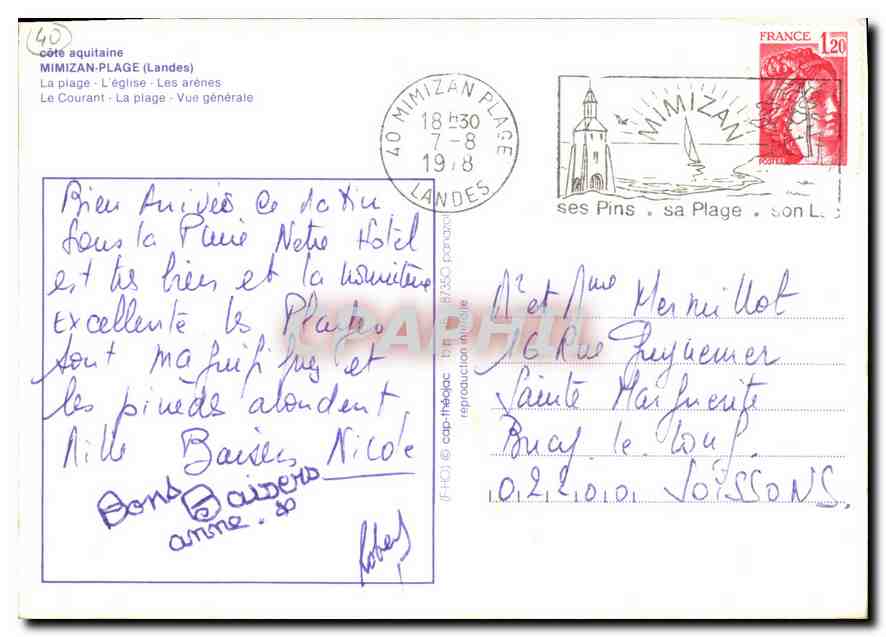 40
côte aquitaine
MIMIZAN-PLAGE (Landes)
La plage - L'église - Les arènes
Le Courant - La plage - Vue générale
40 MIMIZAN PLAGE
18 H 30
7 - 8
1978
LANDES
MIMIZAN
ses Pins . sa Plage . son L
FRANCE 1,20
POSTES
Bien Arrivés Ce Matin
Sous la Pluie Notre Hotel
est très bien et la nourriture
Excellente les Plages
sont magnifiques et
les pinèdes abondent
Mille Baisers Nicole
Bons Baisers
anne.
Robert
(F-HC) © cap-théojac 87350 panazol
reproduction interdite
CPAPHIL
Mr et Mme Mermillot
16 Rue Guynemer
Sainte Marguerite
Bucy le Long
02200 SOISSONS